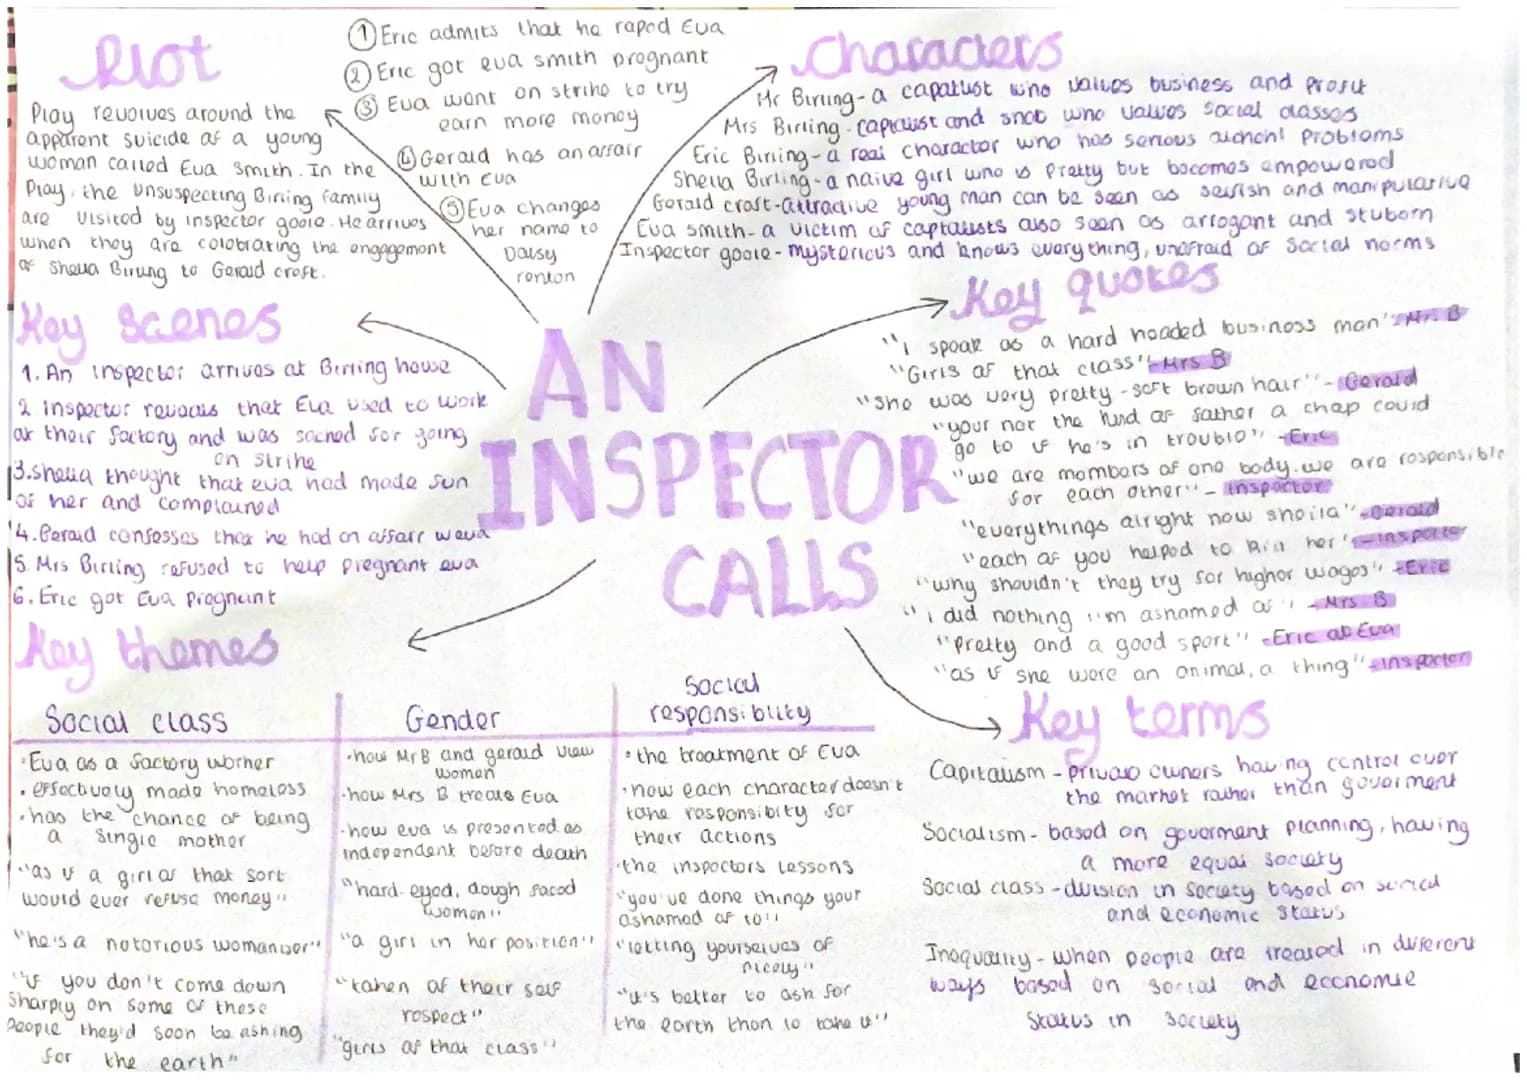 Plot
Play revolves around the
apparent suicide of a young
woman called Eva Smith. In the
Play, the unsuspecting Birling family
are visited by inspector goole. He arrives
when they are celebrating the engagement
of Sheila Birling to Gerald croft.
① Eric admits that he raped Eva
② Eric got eva smith pregnant
③ Eva went on strike to try
earn more money
④ Gerald has an affair
with Eva
⑤ Eva changes
her name to
Daisy
renton
Characters
Mr Birling - a capatlist who values business and profit
Mrs Birling - capitalist and snob who values social classes
Eric Birling - a real character who has serious alchohl problems
Sheila Birling - a naive girl who is pretty but becomes empowered
Gerald croft - attractive young man can be seen as selfish and manipulative
Eva smith - a victim of captalists also seen as arrogant and stuborn
Inspector goole - mysterious and knows everything, unafraid of social norms
Key scenes
1. An inspector arrives at Birling house
2 inspector reveals that Eva used to work
at their factory and was sacked for going
on strike
3. sheila thought that eva had made fun
of her and complained
4. Gerald confesses that he had an affair w eva
5. Mrs Birling refused to help pregnant eva
6. Eric got Eva pregnant
AN
INSPECTOR
CALLS
Key quotes
"i speak as a hard headed business man" - Mr. B
"Girls of that class" - Mrs B
"she was very pretty - soft brown hair" - Gerald
"your not the kind of father a chap could
go to if he's in trouble" - Eric
"we are members of one body. we are responsible
for each other" - inspector
"everythings alright now sheila" - Gerald
"each of you helped to kill her" - inspector
"why shouldn't they try for higher wages" - Eric
"i did nothing i'm ashamed of" - Mrs B
"pretty and a good sport" - Eric ab Eva
"as if she were an animal, a thing" - inspector
Key themes
Social class
· Eva as a factory worker
· effectively made homeless
· has the chance of being
a single mother
· "as if a girl of that sort
would ever refuse money"
"he's a notorious womaniser"
"if you don't come down
sharply on some of these
people they'd soon be asking
for the earth"
Gender
· how Mr B and gerald view
women
· how Mrs B treats Eva
· how eva is presented as
independent before death
"hard-eyed, dough faced
women"
"a girl in her position"
"taken of their self
respect"
"girls of that class"
Social
responsiblity
· the treatment of Eva
· how each character doesn't
take responsibity for
their actions
· the inspectors lessons
"you've done things your
ashamed of to"
"letting yourselves of
nicely"
"it's better to ask for
the earth than to take it"
Key terms
Capitalism - private owners having control over
the market rather than goverment
Socialism - based on goverment planning, having
a more equal society
Social class - division in society based on social
and economic status
Inequality - when people are treated in different
ways based on social and economic
status in society